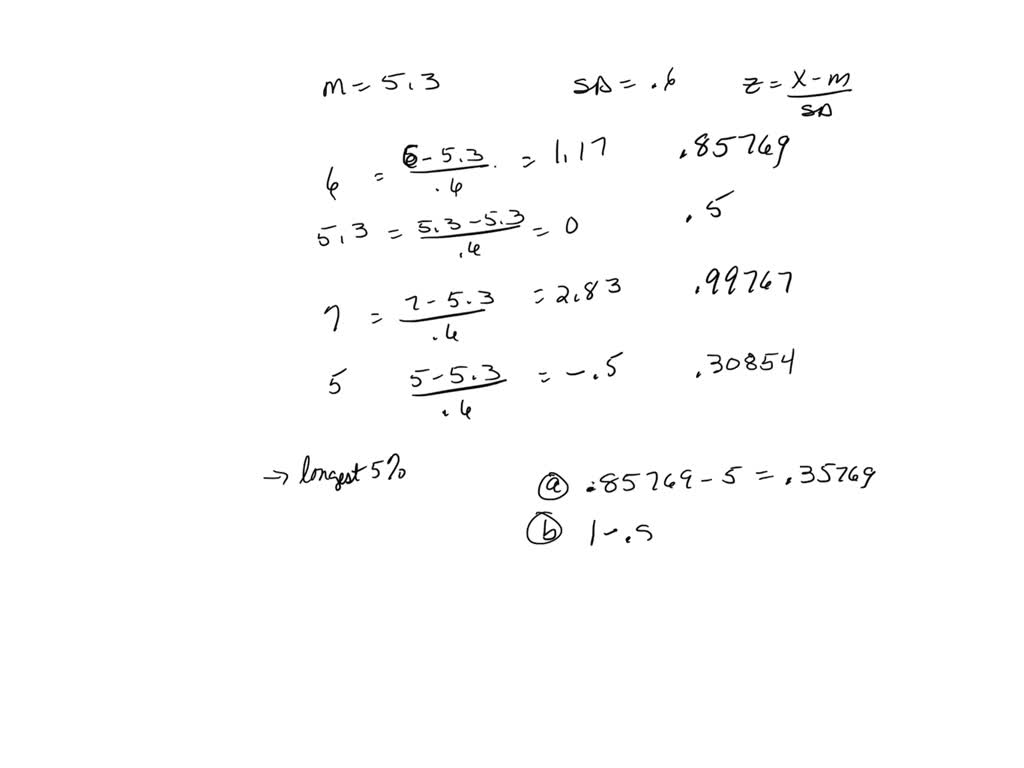 m = 5.3 SD = .6 z = x - m / SD
6 = 6 - 5.3 / .6 = 1.17 .85769
5.3 = 5.3 - 5.3 / .6 = 0 .5
7 = 7 - 5.3 / .6 = 2.83 .99767
5 5 - 5.3 / .6 = -.5 .30854
→ longest 5% ⓐ .85769 - 5 = .35769
ⓑ 1 - .9